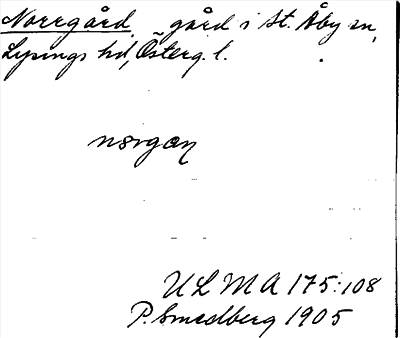 Norrgård, gård i St. Åby sn,
Lysings hd, Österg. l.
norgan
ULMA 175:108
P. Smedberg 1905